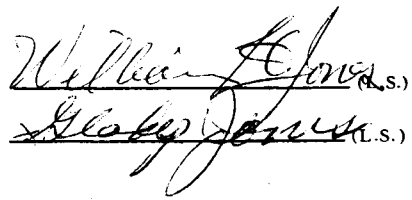 William C. Jones (L.S.)
Gladys Jones (L.S.)